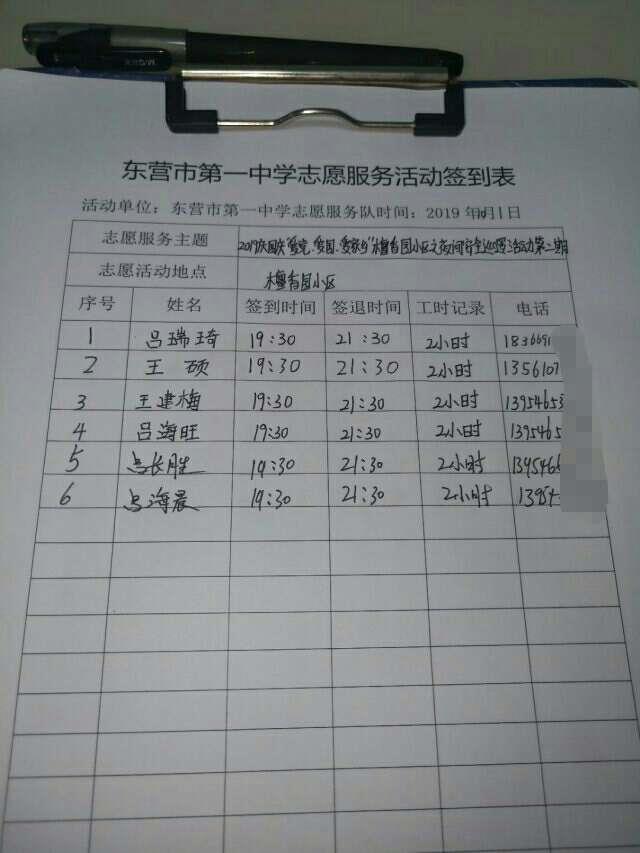 东营市第一中学志愿服务活动签到表
活动单位：东营市第一中学志愿服务队时间：2019年10月1日
志愿服务主题 2019庆国庆"爱党、爱国、爱家乡"木槿香园小区之夜间安全巡逻活动第二期
志愿活动地点 木槿香园小区
序号 姓名 签到时间 签退时间 工时记录 电话
1 吕瑞琦 19:30 21:30 2小时 1836691
2 王硕 19:30 21:30 2小时 1356107
3 王建梅 19:30 21:30 2小时 13954653
4 吕海旺 19:30 21:30 2小时 1395465
5 长胜 19:30 21:30 2小时 1395466
6 海晨 19:30 21:30 2小时 13954